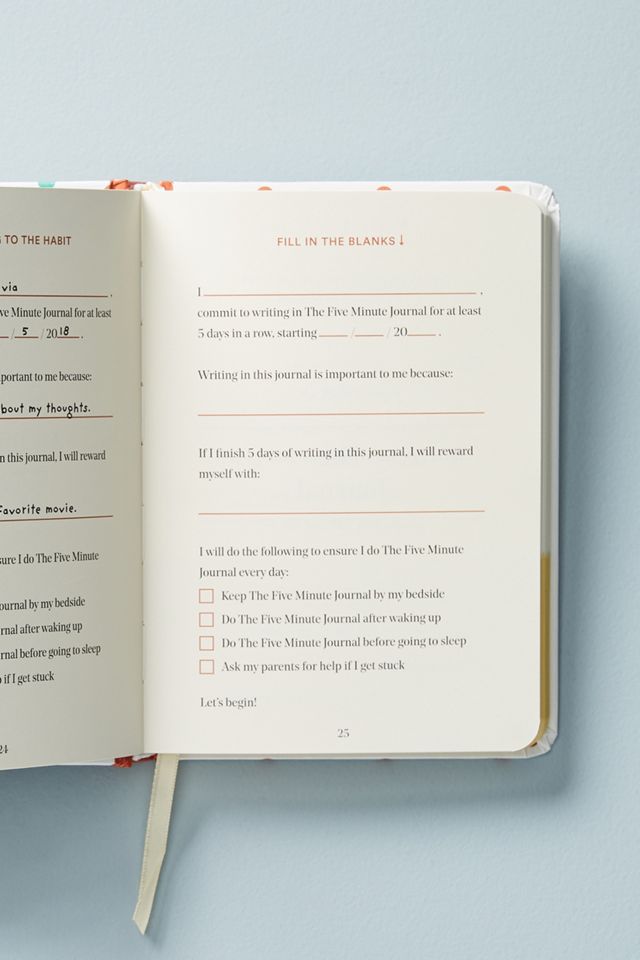 TO THE HABIT
via .
Minute Journal for at least
/ 5 / 2018 .
important to me because:
about my thoughts.
in this journal, I will reward
favorite movie.
I do The Five Minute
by my bedside
after waking up
before going to sleep
if I get stuck
24
FILL IN THE BLANKS ↓
I ,
commit to writing in The Five Minute Journal for at least
5 days in a row, starting / / 20 .
Writing in this journal is important to me because:
If I finish 5 days of writing in this journal, I will reward
myself with:
I will do the following to ensure I do The Five Minute
Journal every day:
Keep The Five Minute Journal by my bedside
Do The Five Minute Journal after waking up
Do The Five Minute Journal before going to sleep
Ask my parents for help if I get stuck
Let's begin!
25